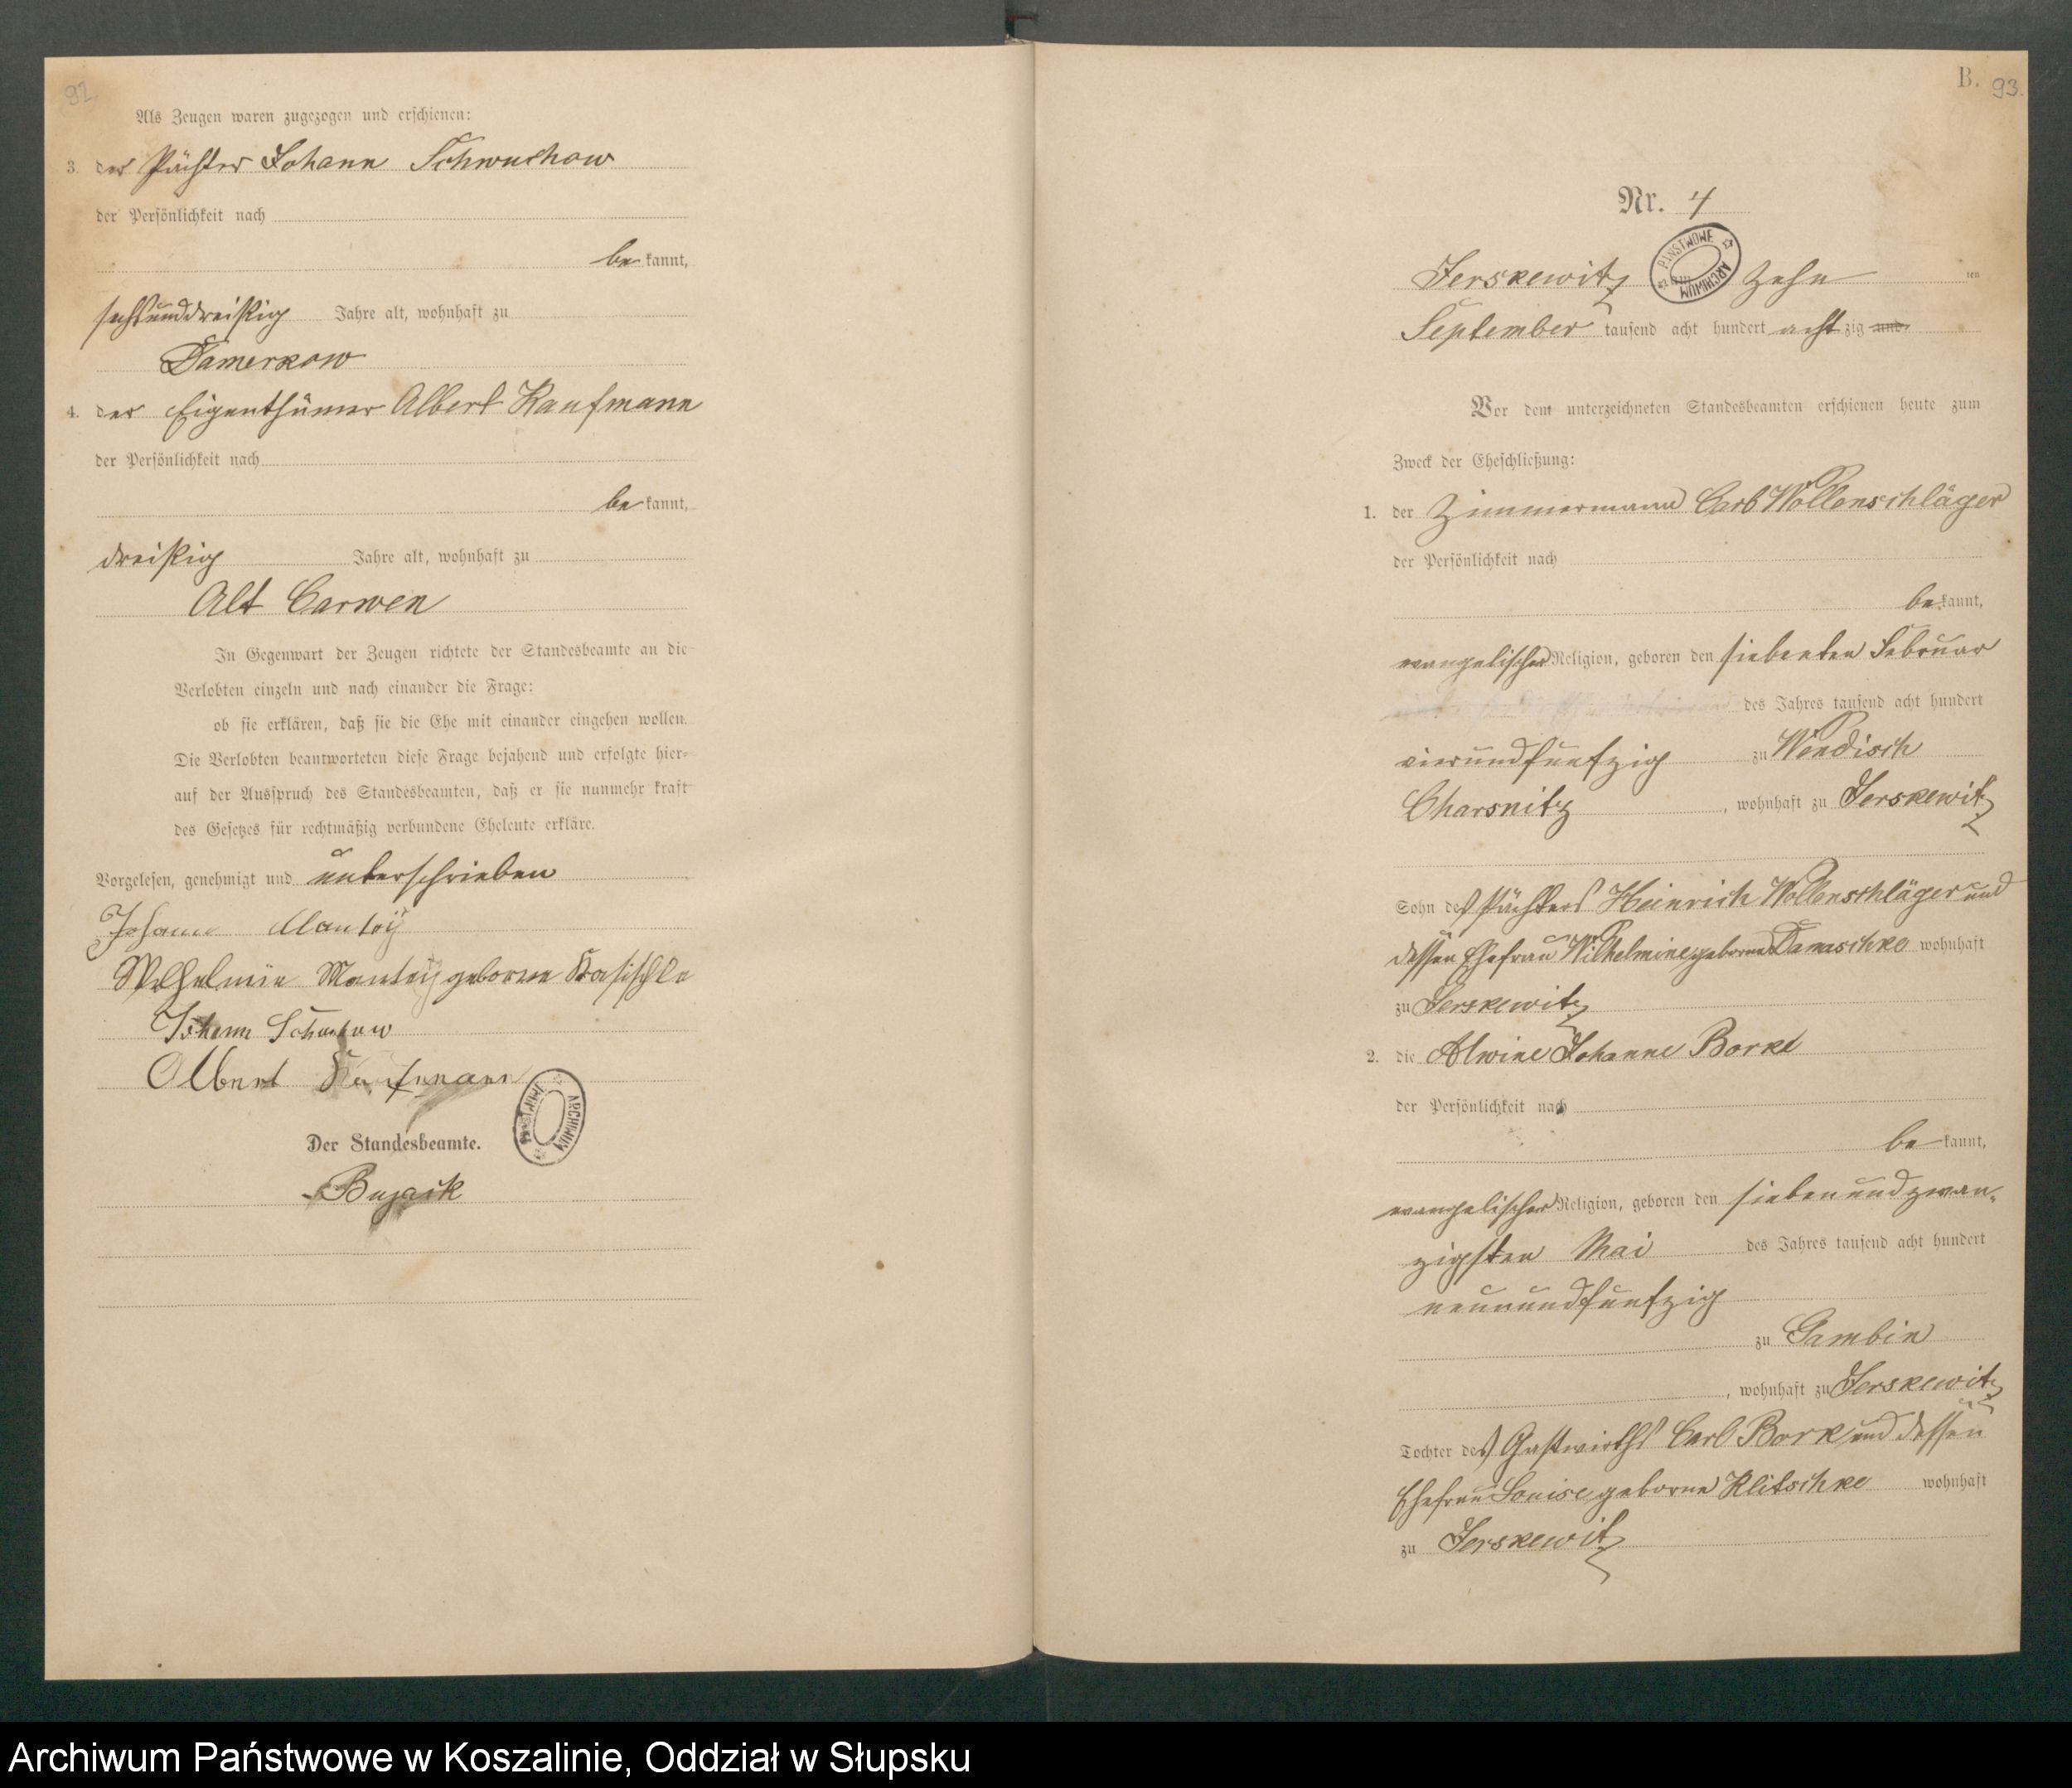 92.
Als Zeugen waren zugezogen und erschienen:
3. der Pächter Johann Schwuchow
der Persönlichkeit nach
be kannt,
sechsunddreißig Jahre alt, wohnhaft zu
Damerkow
4. der Eigenthümer Albert Kaufmann
der Persönlichkeit nach
be kannt,
dreißig Jahre alt, wohnhaft zu
Alt Carwen
In Gegenwart der Zeugen richtete der Standesbeamte an die
Verlobten einzeln und nach einander die Frage:
ob sie erklären, daß sie die Ehe mit einander eingehen wollen.
Die Verlobten beantworteten diese Frage bejahend und erfolgte hier-
auf der Ausspruch des Standesbeamten, daß er sie nunmehr kraft
des Gesetzes für rechtmäßig verbundene Eheleute erkläre.
Vorgelesen, genehmigt und unterschrieben
Johann Mantey
Wilhelmine Mantey geborne
Johann Schwuchow
Albert Kaufmann
ARCHIWUM
Der Standesbeamte.
Bujack
B. 93.
Nr. 4
Jerskewitz zehn ten
PAŃSTWOWE ARCHIWUM
September tausend acht hundert acht zig und
Vor dem unterzeichneten Standesbeamten erschienen heute zum
Zweck der Eheschließung:
1. der Zimmermann Carl Wollenschläger
der Persönlichkeit nach
be kannt,
evangelischer Religion, geboren den siebenten Februar
des Jahres tausend acht hundert
vierundfünfzig zu Wendisch
Charsnitz, wohnhaft zu Jerskewitz
Sohn des Pächters Heinrich Wollenschläger und
dessen Ehefrau Wilhelmine geborne Damaschke wohnhaft
zu Jerskewitz
2. die Alwine Johanne Borke
der Persönlichkeit nach
be kannt,
evangelischer Religion, geboren den siebenundzwan-
zigsten Mai des Jahres tausend acht hundert
neunundfünfzig
zu Gambin
, wohnhaft zu Jerskewitz
Tochter des Gastwirths Carl Bork und dessen
Ehefrau Louise geborne Klitschke wohnhaft
zu Jerskewitz
Archiwum Państwowe w Koszalinie, Oddział w Słupsku